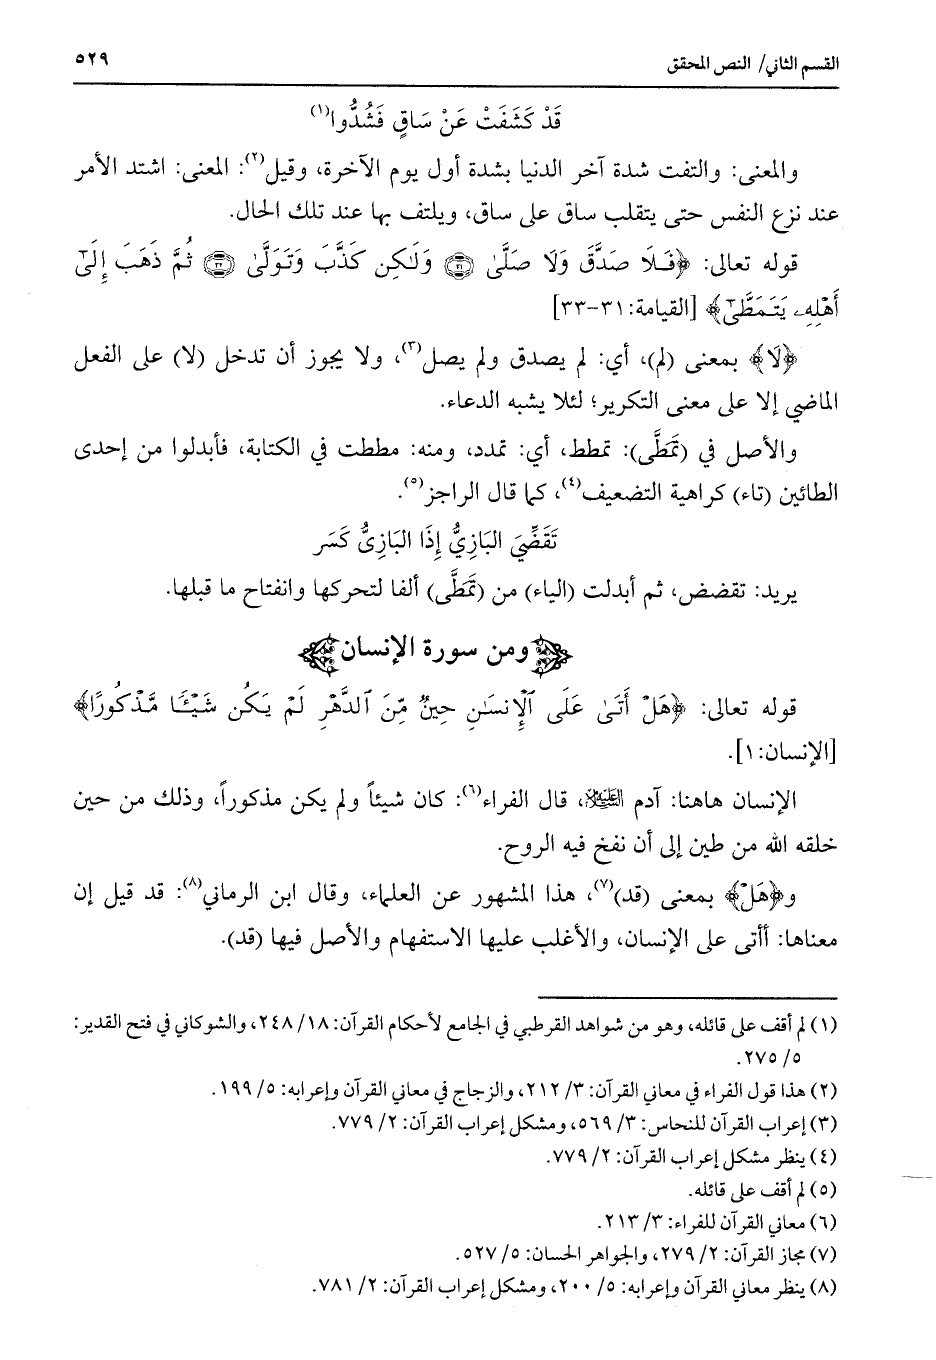 القسم الثاني/ النص المحقق ٥٢٩
قَدْ كَشَفَتْ عَنْ سَاقٍ فَشُدُّوا(١)
والمعنى: والتفت شدة آخر الدنيا بشدة أول يوم الآخرة، وقيل(٢): المعنى: اشتد الأمر
عند نزع النفس حتى يتقلب ساق على ساق، ويلتف بها عند تلك الحال.
قوله تعالى: ﴿فَلَا صَدَّقَ وَلَا صَلَّىٰ ۝٣١ وَلَٰكِن كَذَّبَ وَتَوَلَّىٰ ۝٣٢ ثُمَّ ذَهَبَ إِلَىٰٓ
أَهْلِهِۦ يَتَمَطَّىٰٓ﴾ [القيامة:٣١-٣٣]
﴿لَا﴾ بمعنى (لم)، أي: لم يصدق ولم يصل(٣)، ولا يجوز أن تدخل (لا) على الفعل
الماضي إلا على معنى التكرير؛ لئلا يشبه الدعاء.
والأصل في (تَمَطَّى): تمطط، أي: تمدد، ومنه: مططت في الكتابة، فأبدلوا من إحدى
الطائين (تاء) كراهية التضعيف(٤)، كما قال الراجز(٥).
تَقَضِّيَ البَازِيُّ إِذَا البَازِىُّ كَسَر
يريد: تقضض، ثم أبدلت (الياء) من (تَمَطَّى) ألفا لتحركها وانفتاح ما قبلها.
ومن سورة الإنسان
قوله تعالى: ﴿هَلْ أَتَىٰ عَلَى ٱلْإِنسَٰنِ حِينٌ مِّنَ ٱلدَّهْرِ لَمْ يَكُن شَيْـًٔا مَّذْكُورًا﴾
[الإنسان:١].
الإنسان هاهنا: آدم عليه السلام، قال الفراء(٦): كان شيئاً ولم يكن مذكوراً، وذلك من حين
خلقه الله من طين إلى أن نفخ فيه الروح.
و﴿هَلْ﴾ بمعنى (قد)(٧)، هذا المشهور عن العلماء، وقال ابن الرماني(٨): قد قيل إن
معناها: أأتى على الإنسان، والأغلب عليها الاستفهام والأصل فيها (قد).
(١) لم أقف على قائله، وهو من شواهد القرطبي في الجامع لأحكام القرآن: ١٨/ ٢٤٨، والشوكاني في فتح القدير:
٥/ ٢٧٥.
(٢) هذا قول الفراء في معاني القرآن: ٣/ ٢١٢، والزجاج في معاني القرآن وإعرابه: ٥/ ١٩٩.
(٣) إعراب القرآن للنحاس: ٣/ ٥٦٩، ومشكل إعراب القرآن: ٢/ ٧٧٩.
(٤) ينظر مشكل إعراب القرآن: ٢/ ٧٧٩.
(٥) لم أقف على قائله.
(٦) معاني القرآن للفراء: ٣/ ٢١٣.
(٧) مجاز القرآن: ٢/ ٢٧٩، والجواهر الحسان: ٥/ ٥٢٧.
(٨) ينظر معاني القرآن وإعرابه: ٥/ ٢٠٠، ومشكل إعراب القرآن: ٢/ ٧٨١.